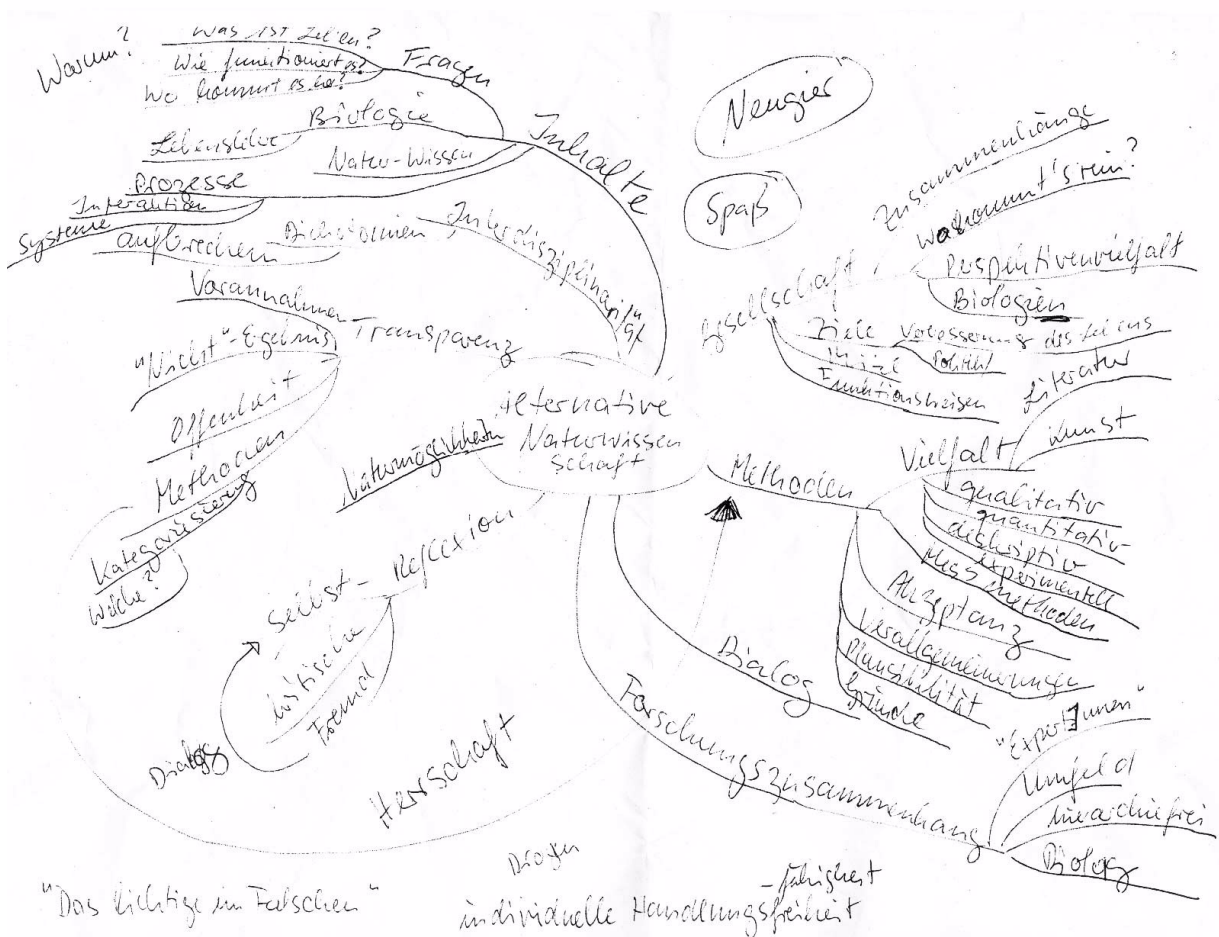 Warum?
Was ist Leben?
Wie funktioniert es?
Wo kommt es her?
Fragen
Biologie
Lebenslehre
Natur-Wissen
Prozesse
Interaktion
Systeme
Inhalte
aufbrechen Dichotomien - Interdisziplinarität
Vorannahmen - Transparenz
"Nicht"-Ergebnis
Offenheit
Methoden
Kategorisierung
Welche?
Naturmöglichkeiten
Alternative
Naturwissen
schaft
Selbst - Reflexion
kritische
Fremd
Dialog
Herrschaft
Neugier
Spaß
Gesellschaft
Zusammenhänge
Wo kommt's rein?
Perspektivenvielfalt
Biologien
Ziele Verbesserung des Lebens
Politik!
Funktionsweisen
Methoden
Vielfalt
Literatur
Kunst
qualitativ
quantitativ
deskriptiv
experimentell
Mess methoden
Akzeptanz
Verallgemeinerungen
Plausibilität
Gründe
Dialog
Forschungszusammenhang
"ExpertInnen"
Umfeld
hierarchiefrei
Biology
"Das Richtige im Falschen"
Drogen
- fähigkeit
individuelle Handlungsfreiheit